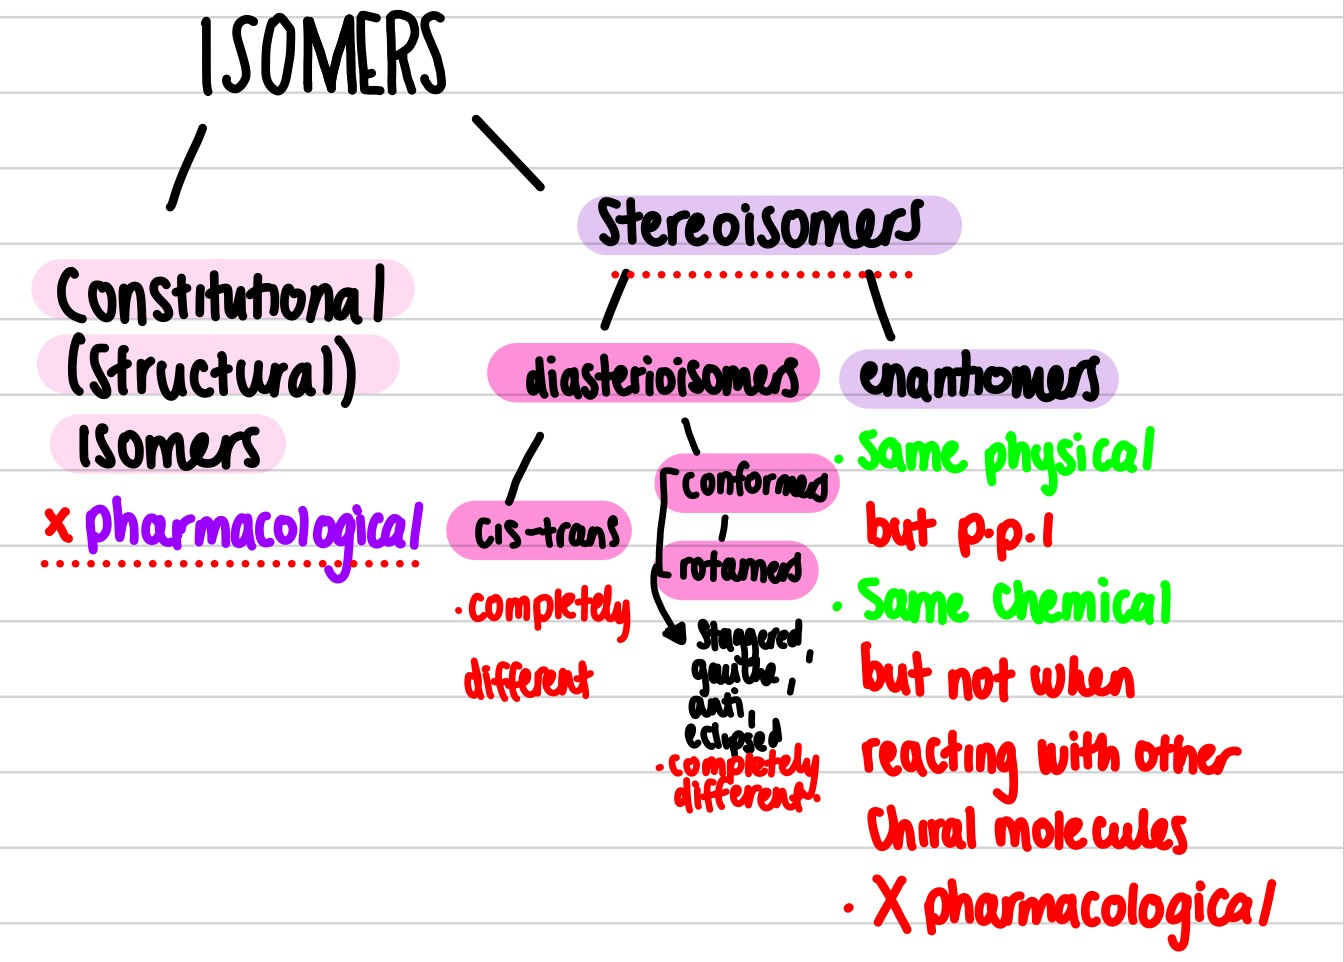 ISOMERS
Stereoisomers
Constitutional
(Structural)
Isomers
x pharmacological
diasterioisomers
enantiomers
cis-trans
• completely
different
conformers
rotamers
staggered,
gauche,
anti,
eclipsed
• completely
different.
• Same physical
but p.p.l
• Same Chemical
but not when
reacting with other
Chiral molecules
• X pharmacological